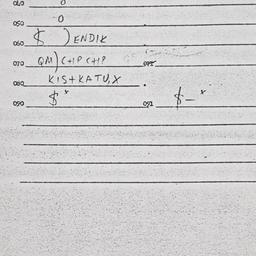 040 0
050 0
060 $ ) ENDIK
070 QM) C+IP C+IP
080 KIS+KATU,X
090 $ x 091 $- x